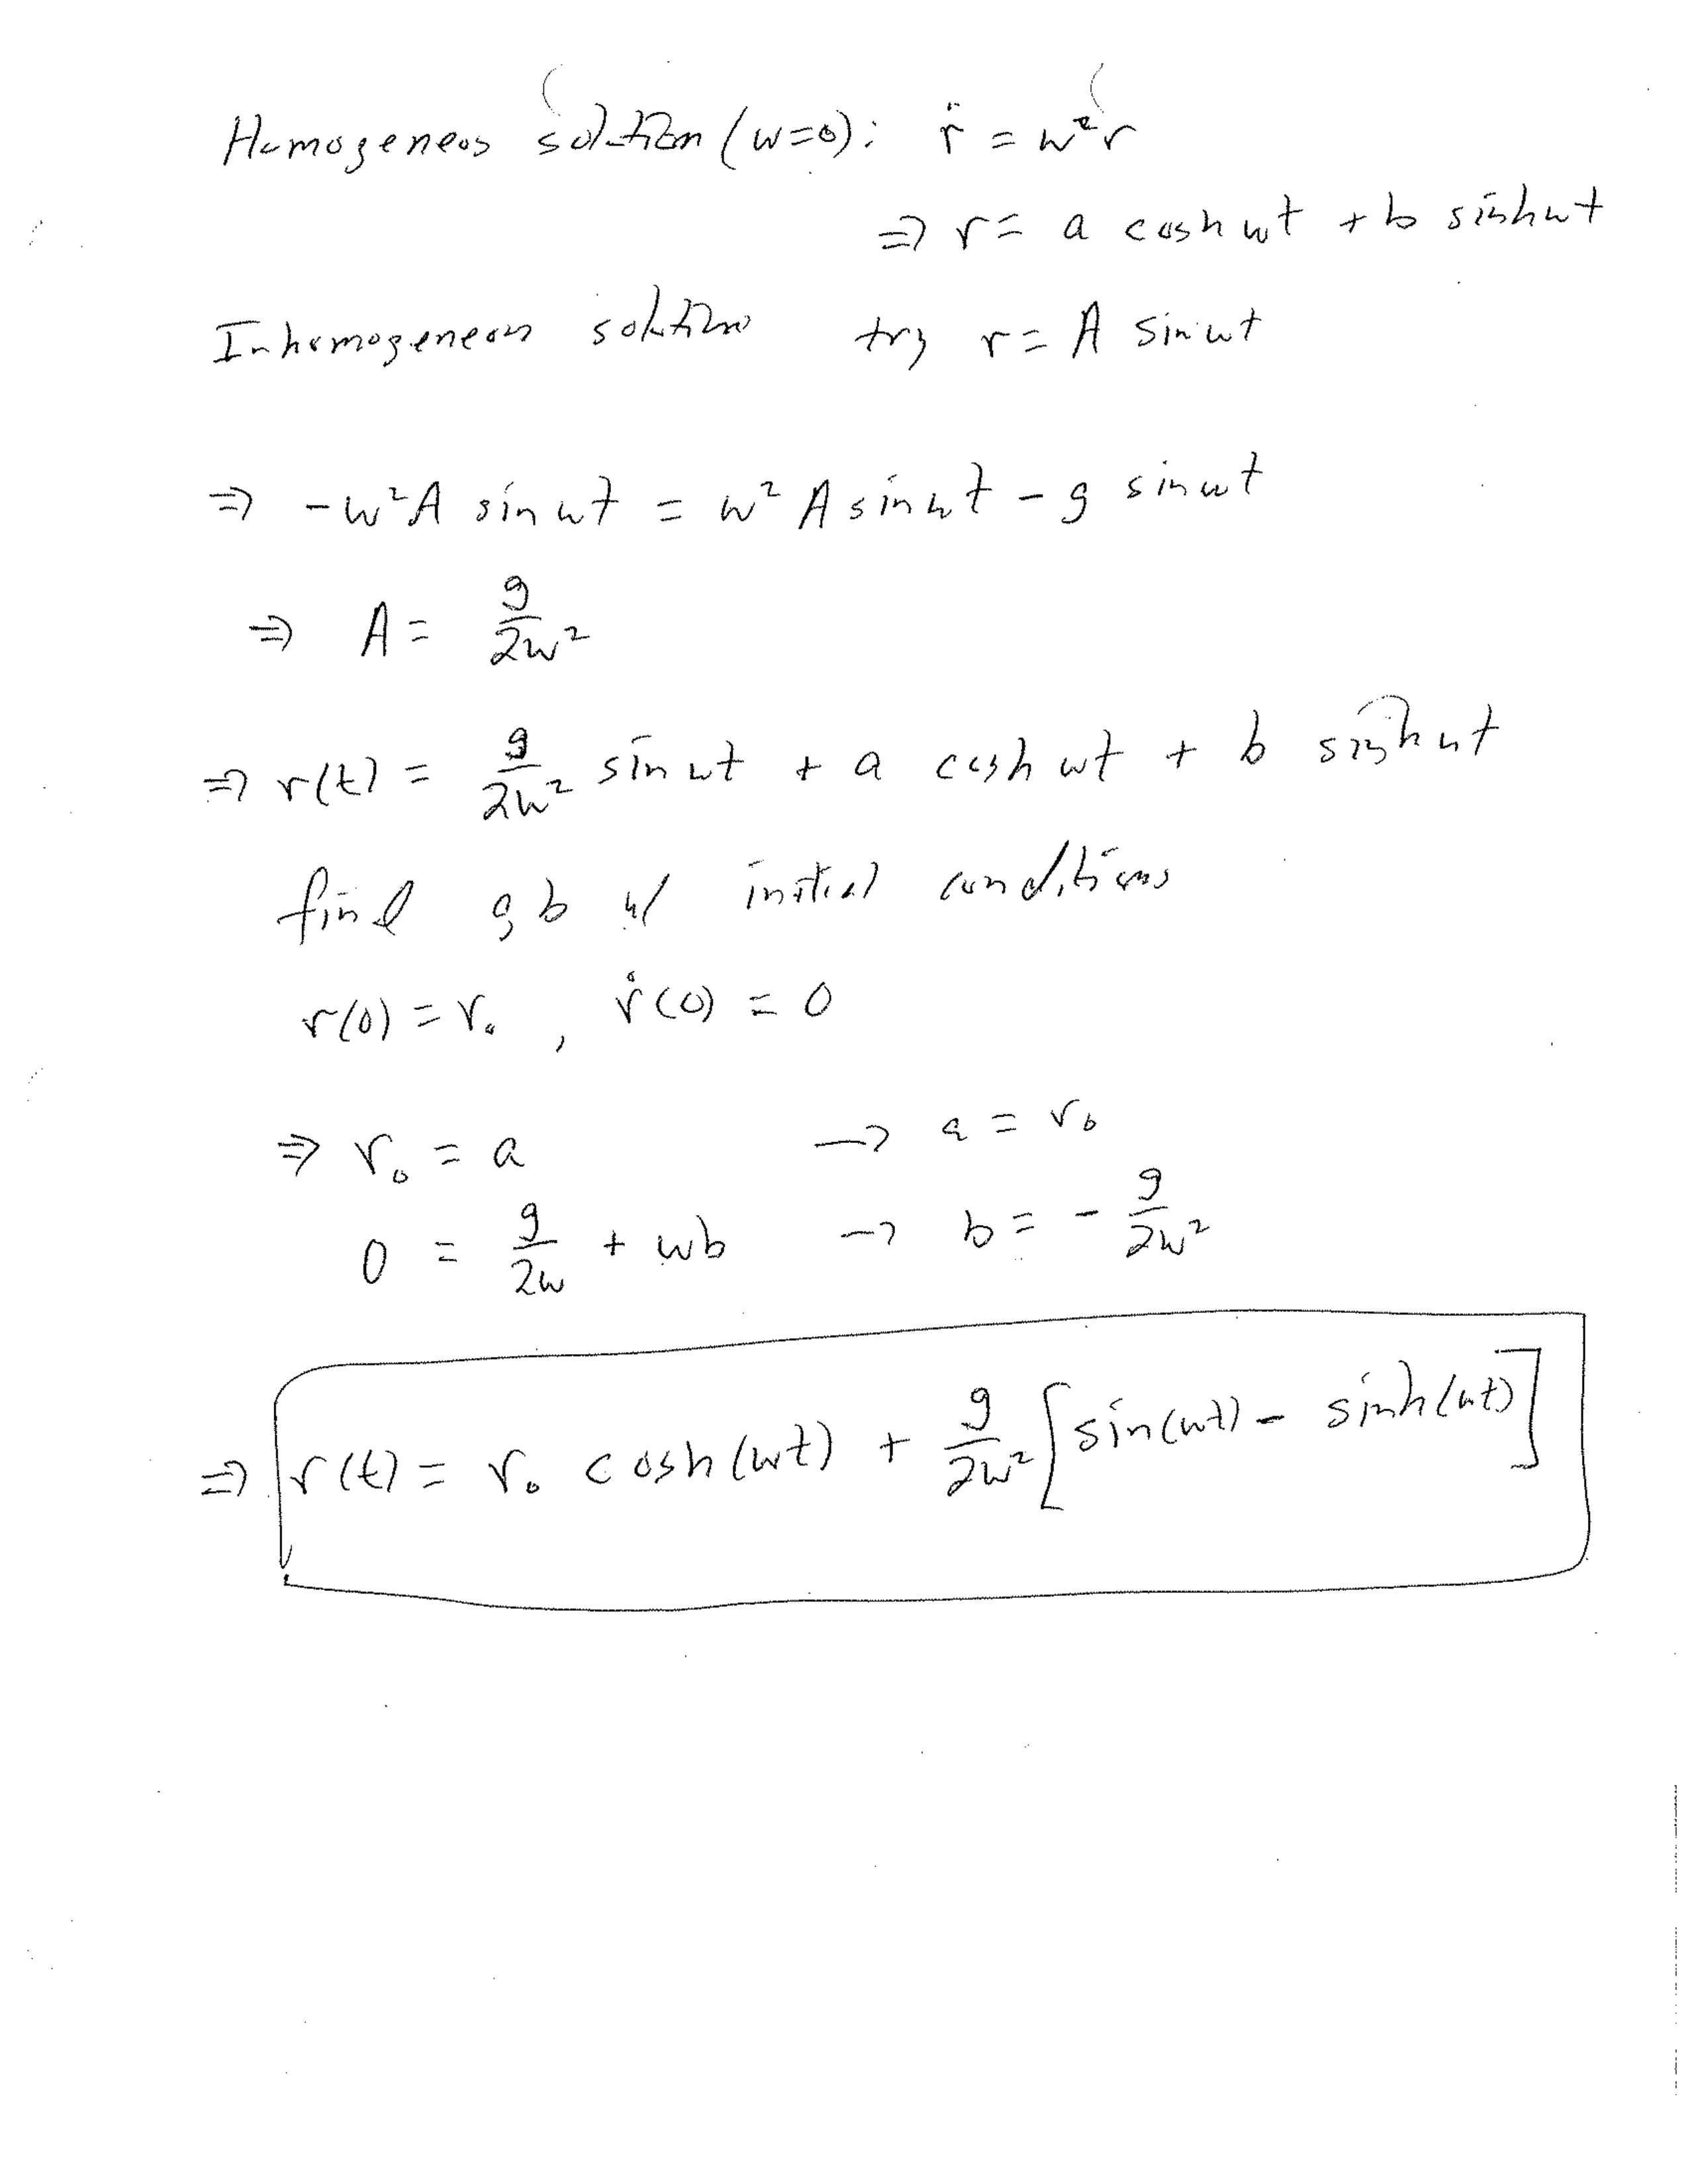 Homogeneos solution (w=0): r̈ = w²r
⇒ r = a cosh wt + b sinh wt
Inhomogeneous solution try r = A sin wt
⇒ -w²A sin wt = w² A sin wt - g sin wt
⇒ A = g/2w²
⇒ r(t) = g/2w² sin wt + a cosh wt + b sinh wt
find a,b w/ initial conditions
r(0) = r₀ , ṙ(0) = 0
⇒ r₀ = a → a = r₀
0 = g/2w + wb → b = - g/2w²
⇒ r(t) = r₀ cosh(wt) + g/2w² [sin(wt) - sinh(wt)]